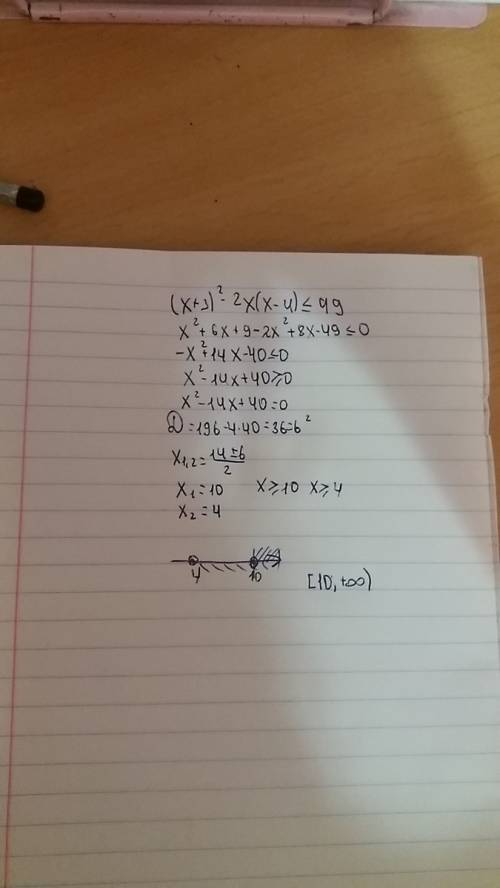 (x+3)² - 2x(x-4) ≤ 49
x²+6x+9-2x²+8x-49 ≤ 0
-x²+14x-40 ≤ 0
x²-14x+40 ≥ 0
x²-14x+40=0
D=196-4·40=36=6²
x₁,₂=(14±6)/2
x₁=10 x≥10 x≥4
x₂=4
4 10
[10,+∞)